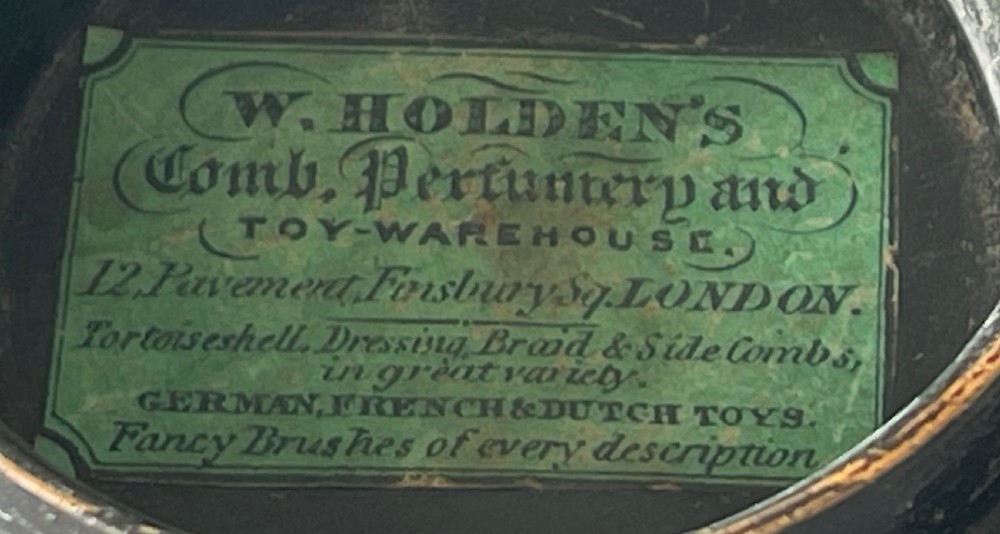 W. HOLDEN'S
Comb, Perfumery and
TOY-WAREHOUSE.
12, Pavement, Finsbury Sq. LONDON.
Tortoiseshell, Dressing, Braid & Side Combs,
in great variety.
GERMAN, FRENCH & DUTCH TOYS.
Fancy Brushes of every description